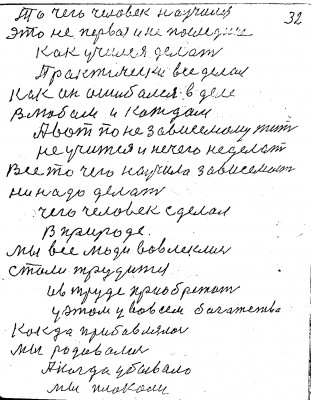 То чего человек научился 32
Это не первая и не последние
Как учился делат
Практически все делал
Как он ошибался в деле
В любом и каждом
А вот по не зависемому жит
не учится и нечего неделат
Все то чего научила зависемост
ни надо делат
чего человек сделал
В природе.
мы все люди вовлеклис
стали трудится
и в труде приобретат
у этом у во всем богатство
Когда прибавлялос
мы радовалис
А когда убывало
мы плакали